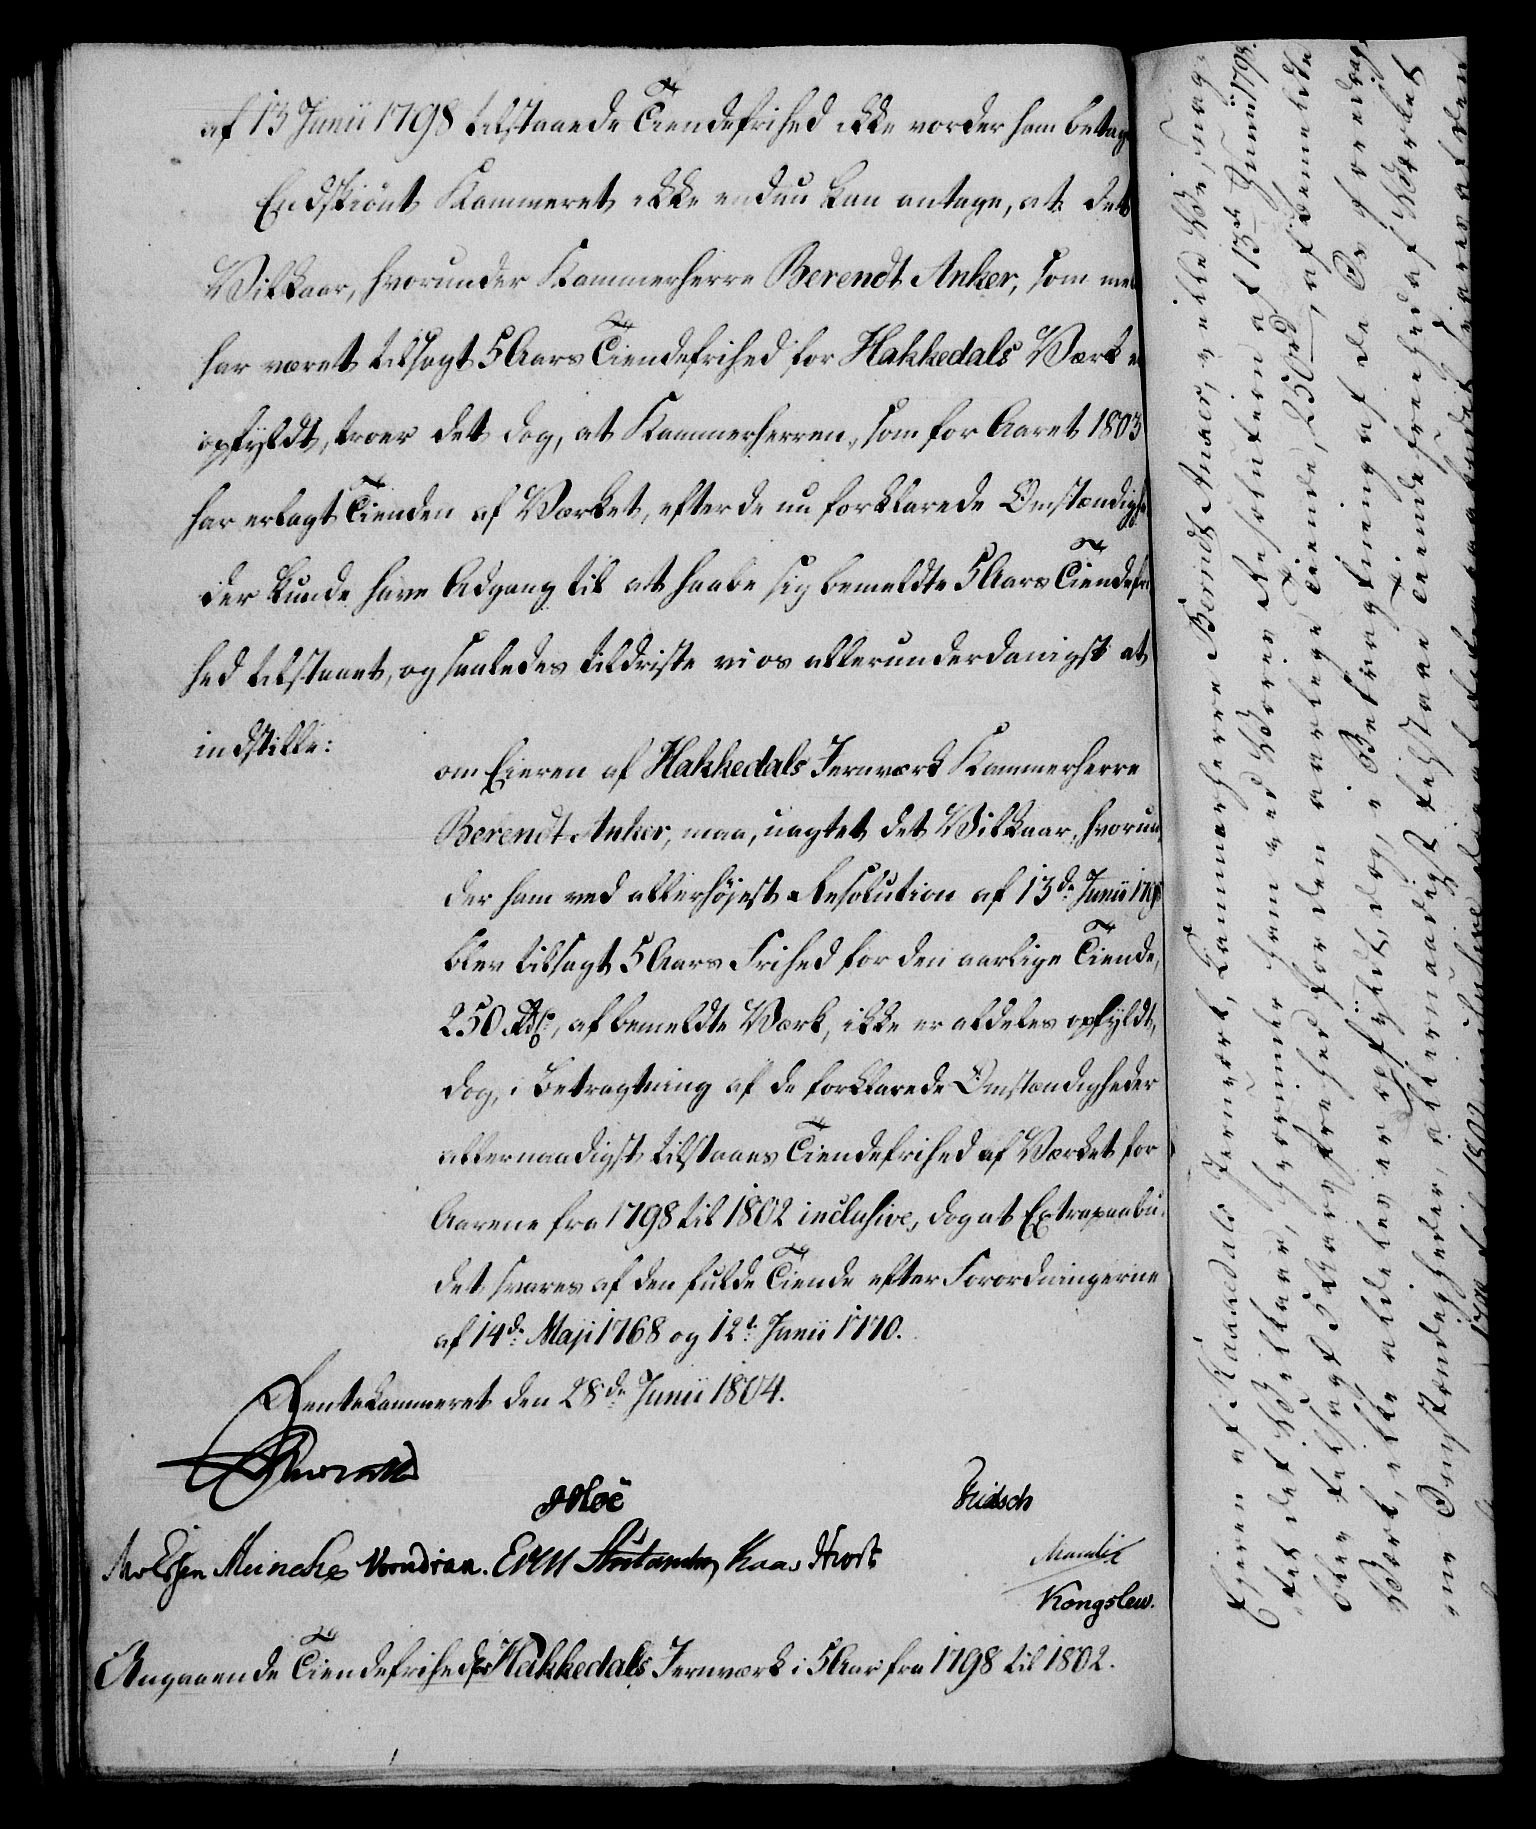 af 13 Junii 1798 tilstaaede Tiendefrihed ikke vorder ham betag
Endskiönt Kammeret ikke endnu kan antage, at det
Vilkaar, hvorunder Kammerherre Berendt Anker, som me
har været tilsagt 5 Aars Tiendefrihed for Hakkedals Værk e
opfyldt, troer det dog, at Kammerherren, som for Aaret 1803
har erlagt Tienden af Værket, efter de nu forklarede Omstændighe
der kunde have Adgang til at haabe sig bemeldte 5 Aars Tiendefri
hed tilstaaet, og saaledes tildriste vi os allerunderdanigst at
indstille:
om Eieren af Hakkedals Jernværk Kammerherre
Berendt Anker, maa, uagtet det Vilkaar, hvorun
der ham ved allerhöjeste Resolution af 13de Junii 1798
blev tilsagt 5 Aars Frihed for den aarlige Tiende,
250 Rdlr, af bemeldte Værk, ikke er aldeles opfyldt,
dog, i Betragtning af de forklarede Omstændigheder
allernaadigst tilstaaes Tiendefrihed af Værket for
Aarene fra 1798 til 1802 inclusive, dog at Extrapaabu-
det svares af den fulde Tiende efter Forordningerne
af 14de Maji 1768 og 12te Junii 1770.
Rentekammeret den 28de Junii 1804.
Hoë
Meincke Wormdrian. Kaas
Kongslew.
Angaaende Tiendefrihed for Hakkedals Jernværk i 5 Aar fra 1798 til 1802.
Ejeren af Hakkedals Jernværk, Kammerherre Berendt Anker, ville Vi,
det Vilkaar, hvorunder ham ved Vores Resolution af 13de Junii 1798.
blev tilsagt 5 Aars Frihed for den aarlige Tiende, 250 rd, af bemeldte
Værk, ikke aldeles er opfyldt, dog, i Betragtning af de
Omstændigheder, allernaadigst tilstaae Tiendefriehed af Værket
1798 til 1802 inclusive